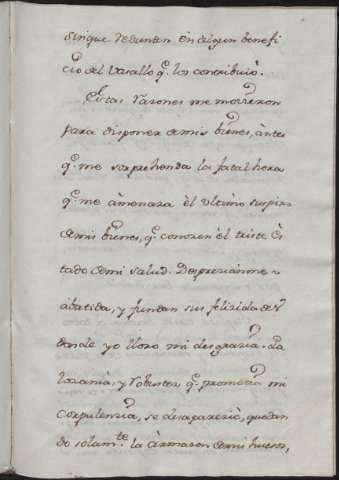 sinque redundan en algun benefi
cio del Vasallo q.e los contribuiò.
Estas razones me movieron
para disponer de mis bienes, àntes
q.e me sorprehenda la fatal hora
q.e me àmenaza èl ultimo suspiro
de mis bienes, q.e conocen èl triste Es
tado de mi salud. Desprecianme
abatida, y fundan sus felicidades
donde yo lloro mi desgracia. La
lozania, y robustez q.e prometia mi
corpulencia, se desapareciò, quedan
do solam.te la àrmazon de mis huesos,